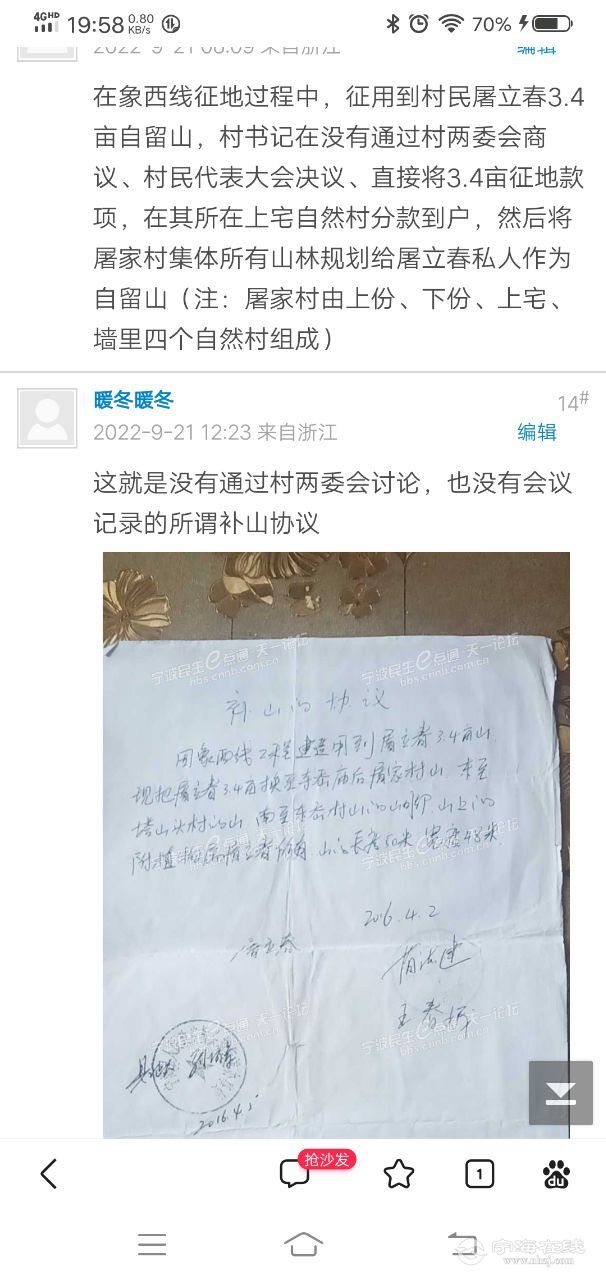 4G HD
19:58
0.80
KB/s
70%
2022-9-21 08:09 来自浙江
编辑
在象西线征地过程中，征用到村民屠立春3.4
亩自留山，村书记在没有通过村两委会商
议、村民代表大会决议、直接将3.4亩征地款
项，在其所在上宅自然村分款到户，然后将
屠家村集体所有山林规划给屠立春私人作为
自留山（注：屠家村由上份、下份、上宅、
墙里四个自然村组成）
暖冬暖冬
14#
2022-9-21 12:23 来自浙江
编辑
这就是没有通过村两委会讨论，也没有会议
记录的所谓补山协议
宁波民生e点通 天一论坛
bbs.cnnb.com.cn
山的协议
因象西线工程建造用到屠立春3.4亩山
现把屠立春3.4亩换至东岙庙后屠家村山 东至
塔山头村的山 南至东岙村山的山脚 山上的
附植物属屠立春所有 山的长度50米 宽度48米
2016.4.2
屠立春
王春
2016.4.5
抢沙发
1
du
宁海在线
www.nhzj.com